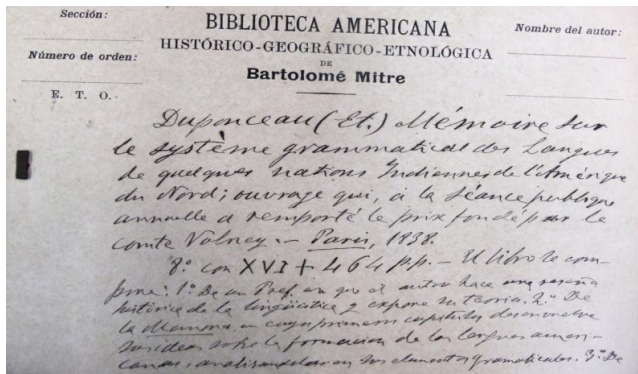 Sección:
BIBLIOTECA AMERICANA
Nombre del autor:
HISTÓRICO-GEOGRÁFICO-ETNOLÓGICA
Número de orden:
DE
Bartolomé Mitre
E. T. O.
Duponceau (Et.) Mémoire sur
le système grammatical des Langues
de quelques nations Indiennes de l'Amérique
du Nord; ouvrage qui, à la séance publique
annuelle a remporté le prix fondé par le
comte Volney. — Paris, 1838.
8.º con XVI + 464 pp. — El libro se com-
pone: 1.º De un Pref. en que el autor hace una reseña
histórica de la lingüística y expone su teoria. 2.º De
la Memoria, en cuyos primeros capitulos desenvuelve
sus ideas sobre la formacion de las lenguas ameri-
canas, analizandolas en sus elementos gramaticales. 3.º De